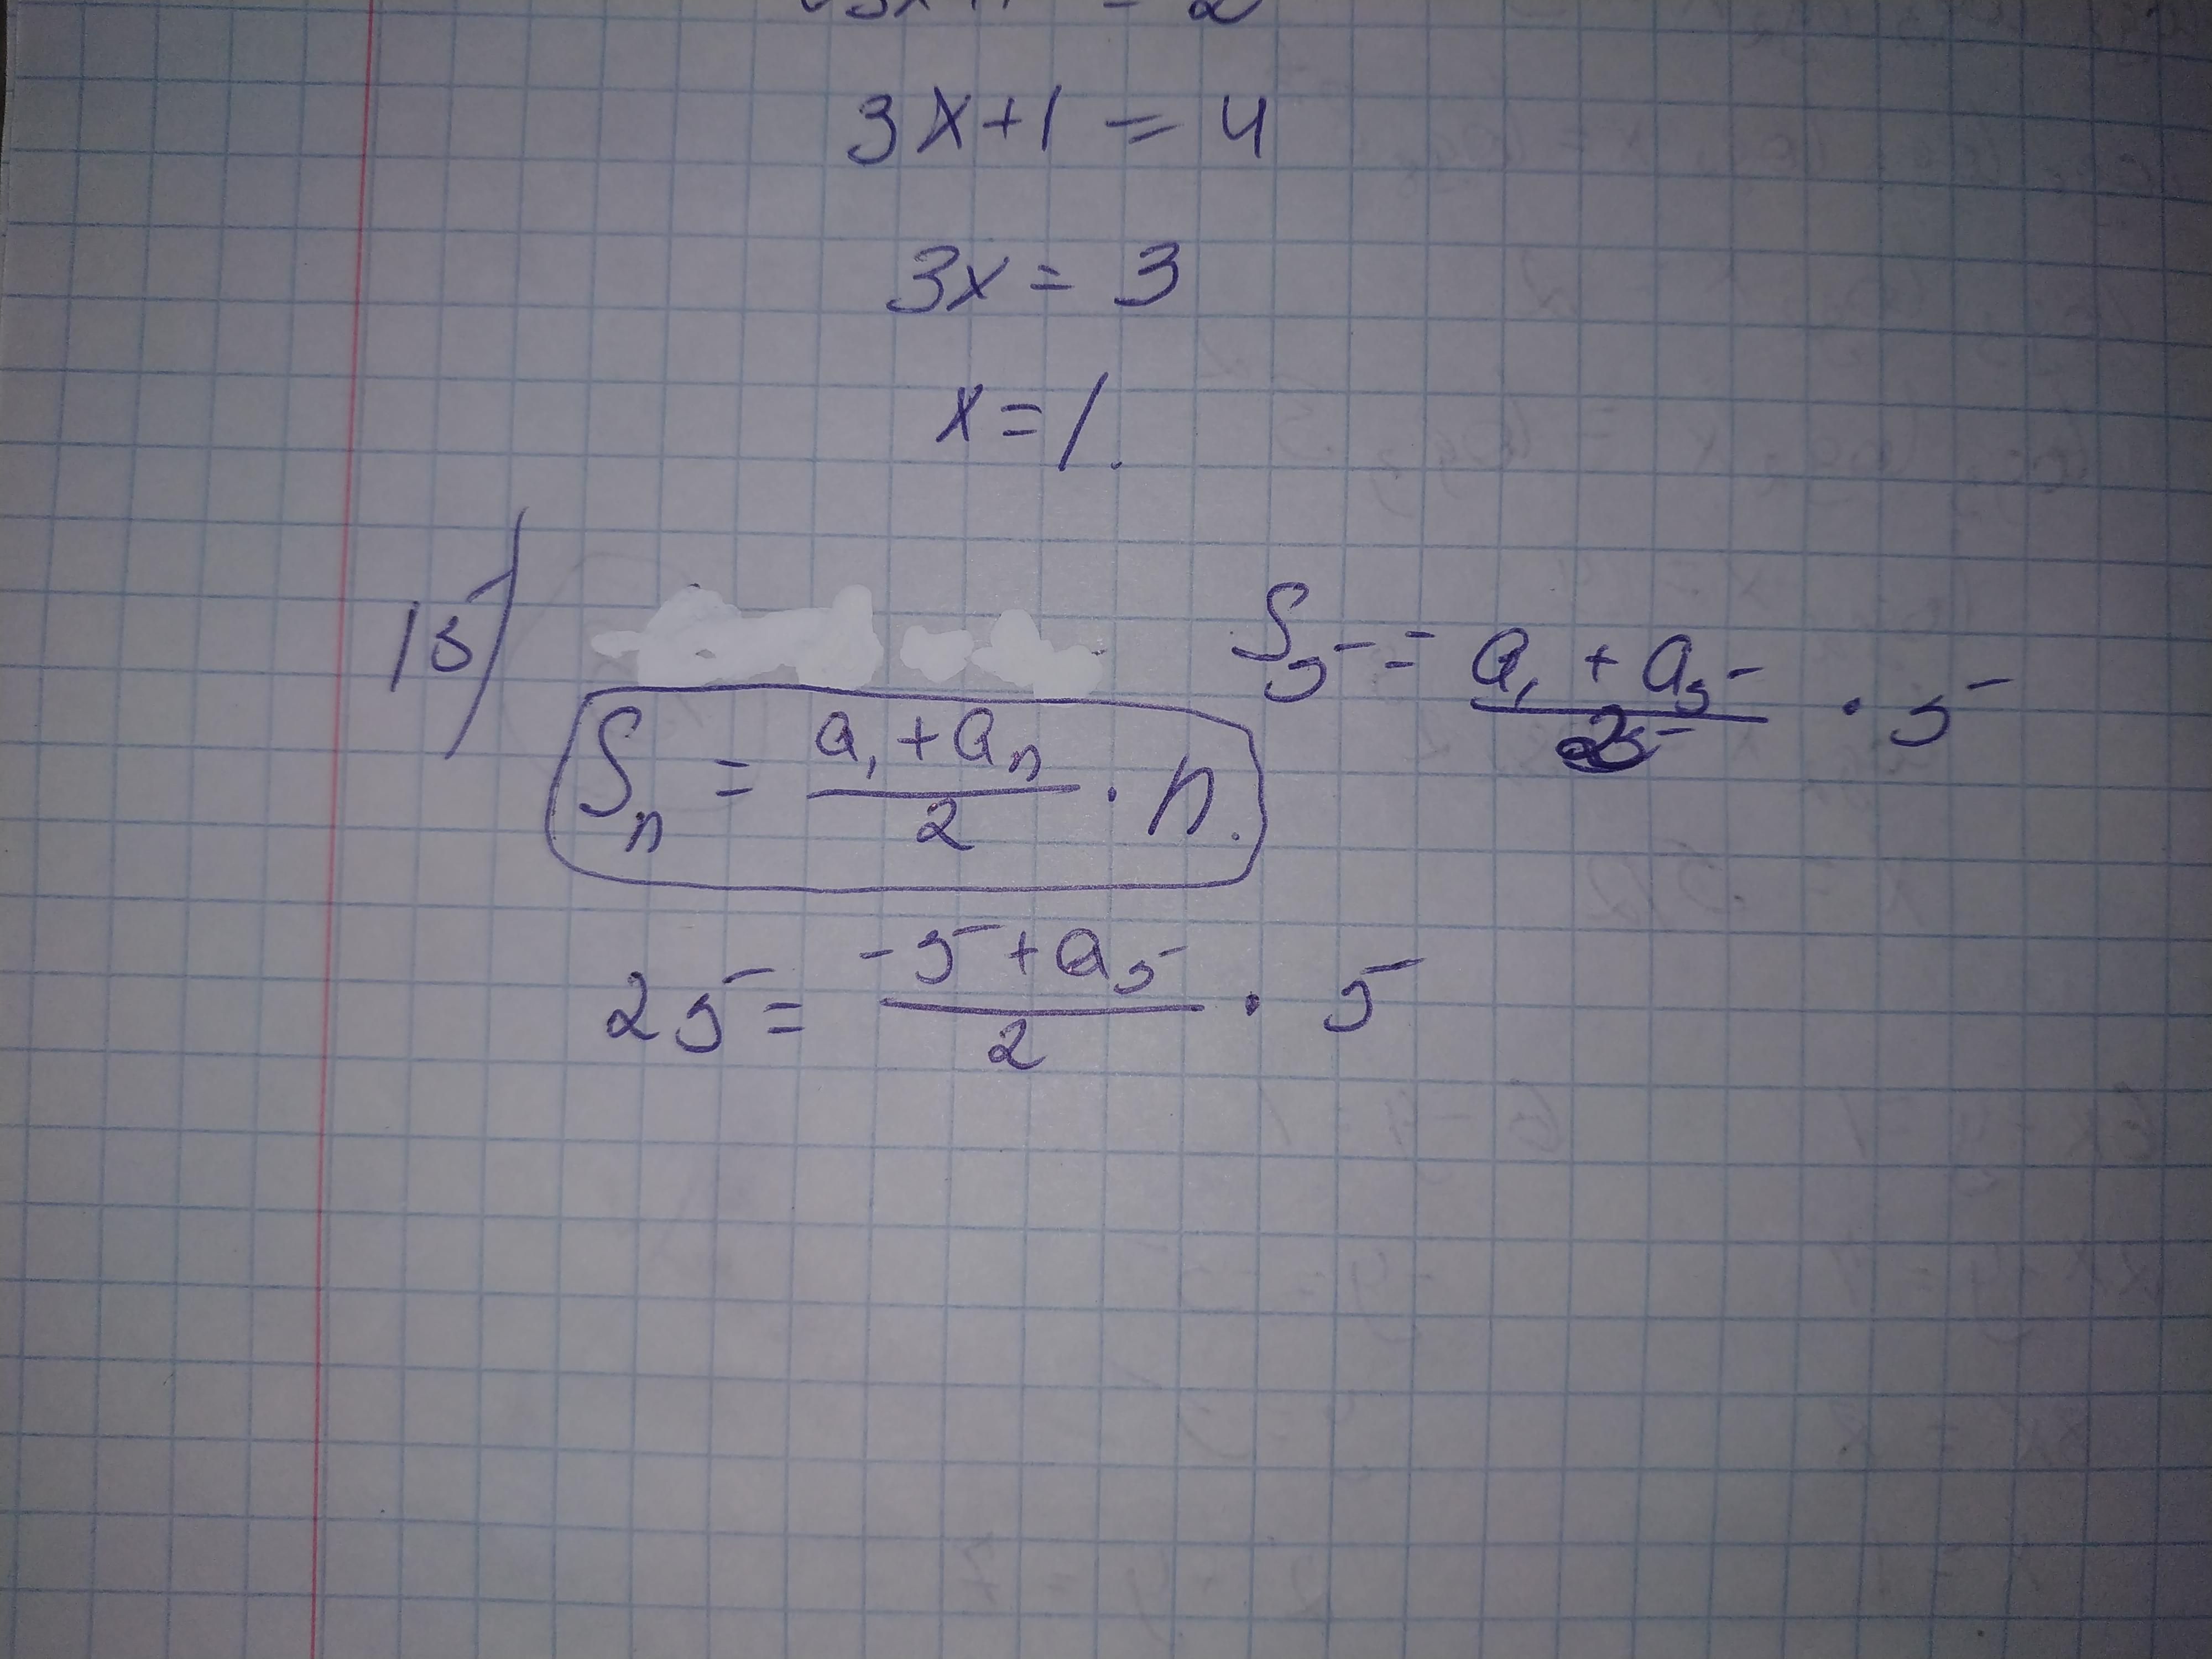 3x+1 = 4
3x = 3
x = 1.
15)
S₅ = (a₁ + a₅)/2 · 5
Sₙ = (a₁ + aₙ)/2 · n.
25 = (-5 + a₅)/2 · 5